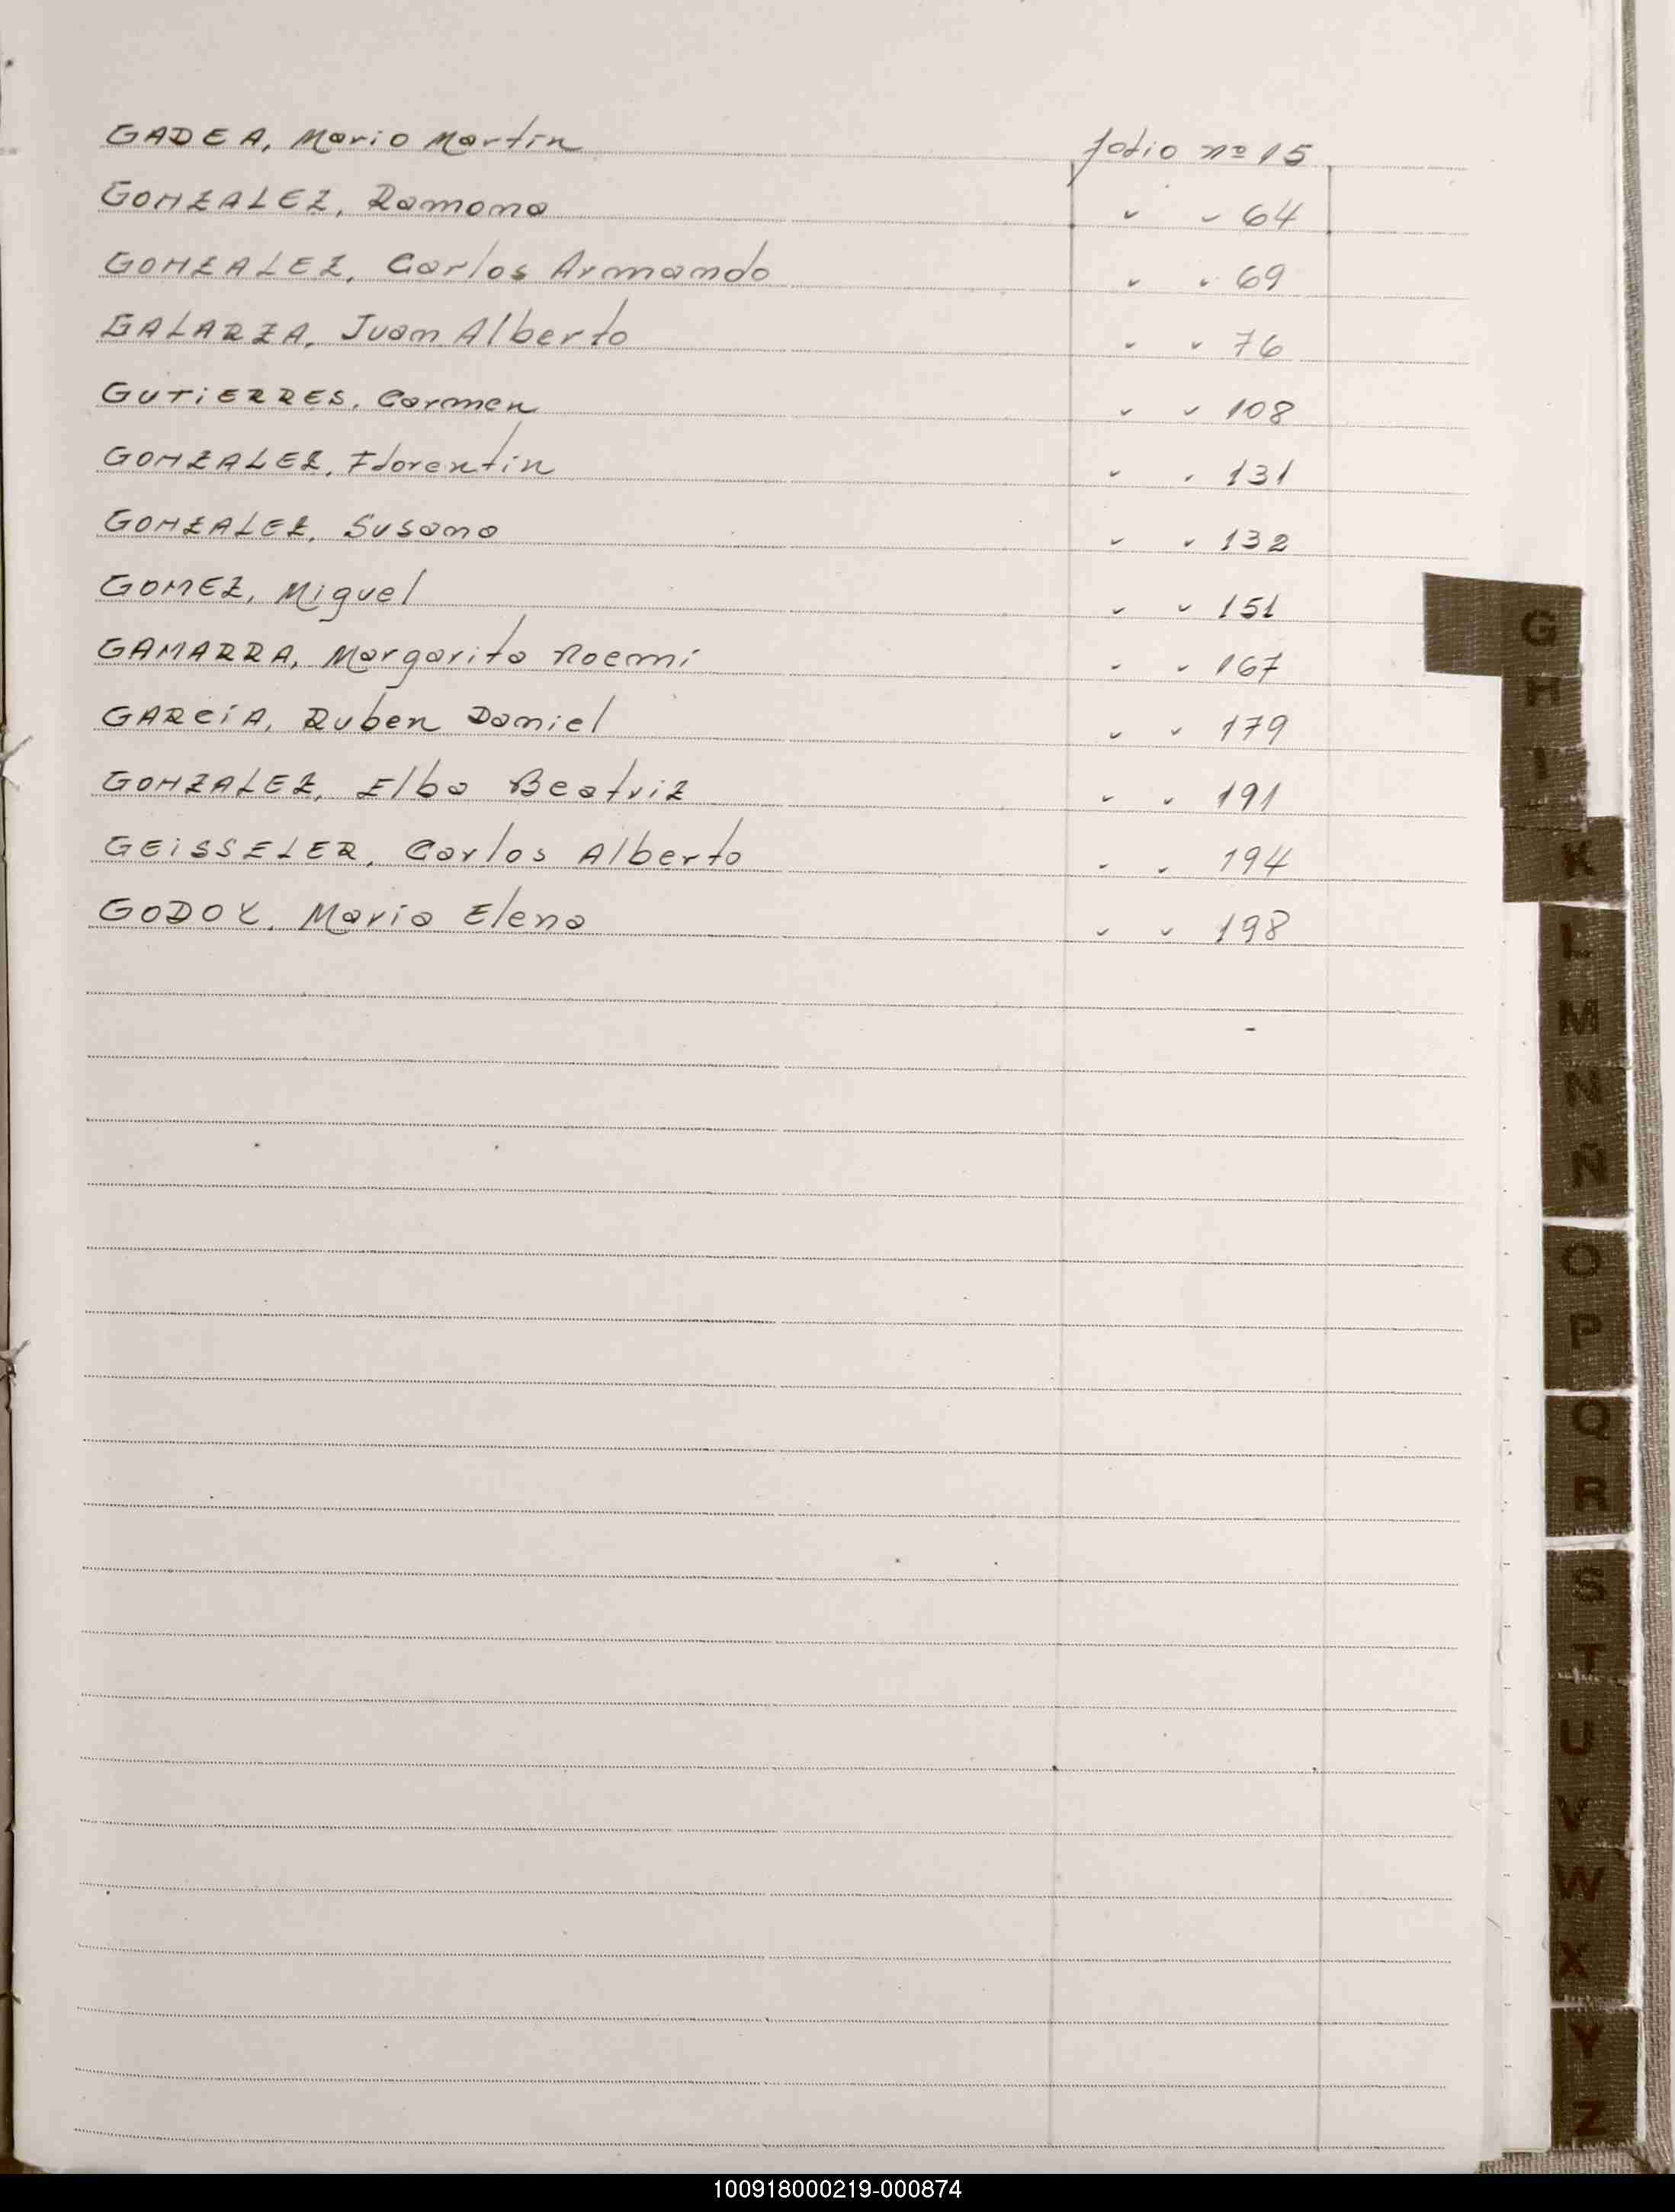 GADEA, Mario Martín folio nº 15
GONZALEZ, Ramona " " 64
GONZALEZ, Carlos Armando " " 69
GALARZA, Juan Alberto " " 76
GUTiERRES, Carmen " " 108
GONZALEZ, Florentín " " 131
GONZALEZ, Susana " " 132
GOMEZ, Miguel " " 151
GAMARRA, Margarita Noemí " " 167
GARCíA, Ruben Daniel " " 179
GONZALEZ, Elba Beatriz " " 191
GEiSSELER, Carlos Alberto " " 194
GODOY, Maria Elena " " 198
G
H
I
K
L
M
N
Ñ
O
P
Q
R
S
T
U
V
W
X
Y
Z
100918000219-000874